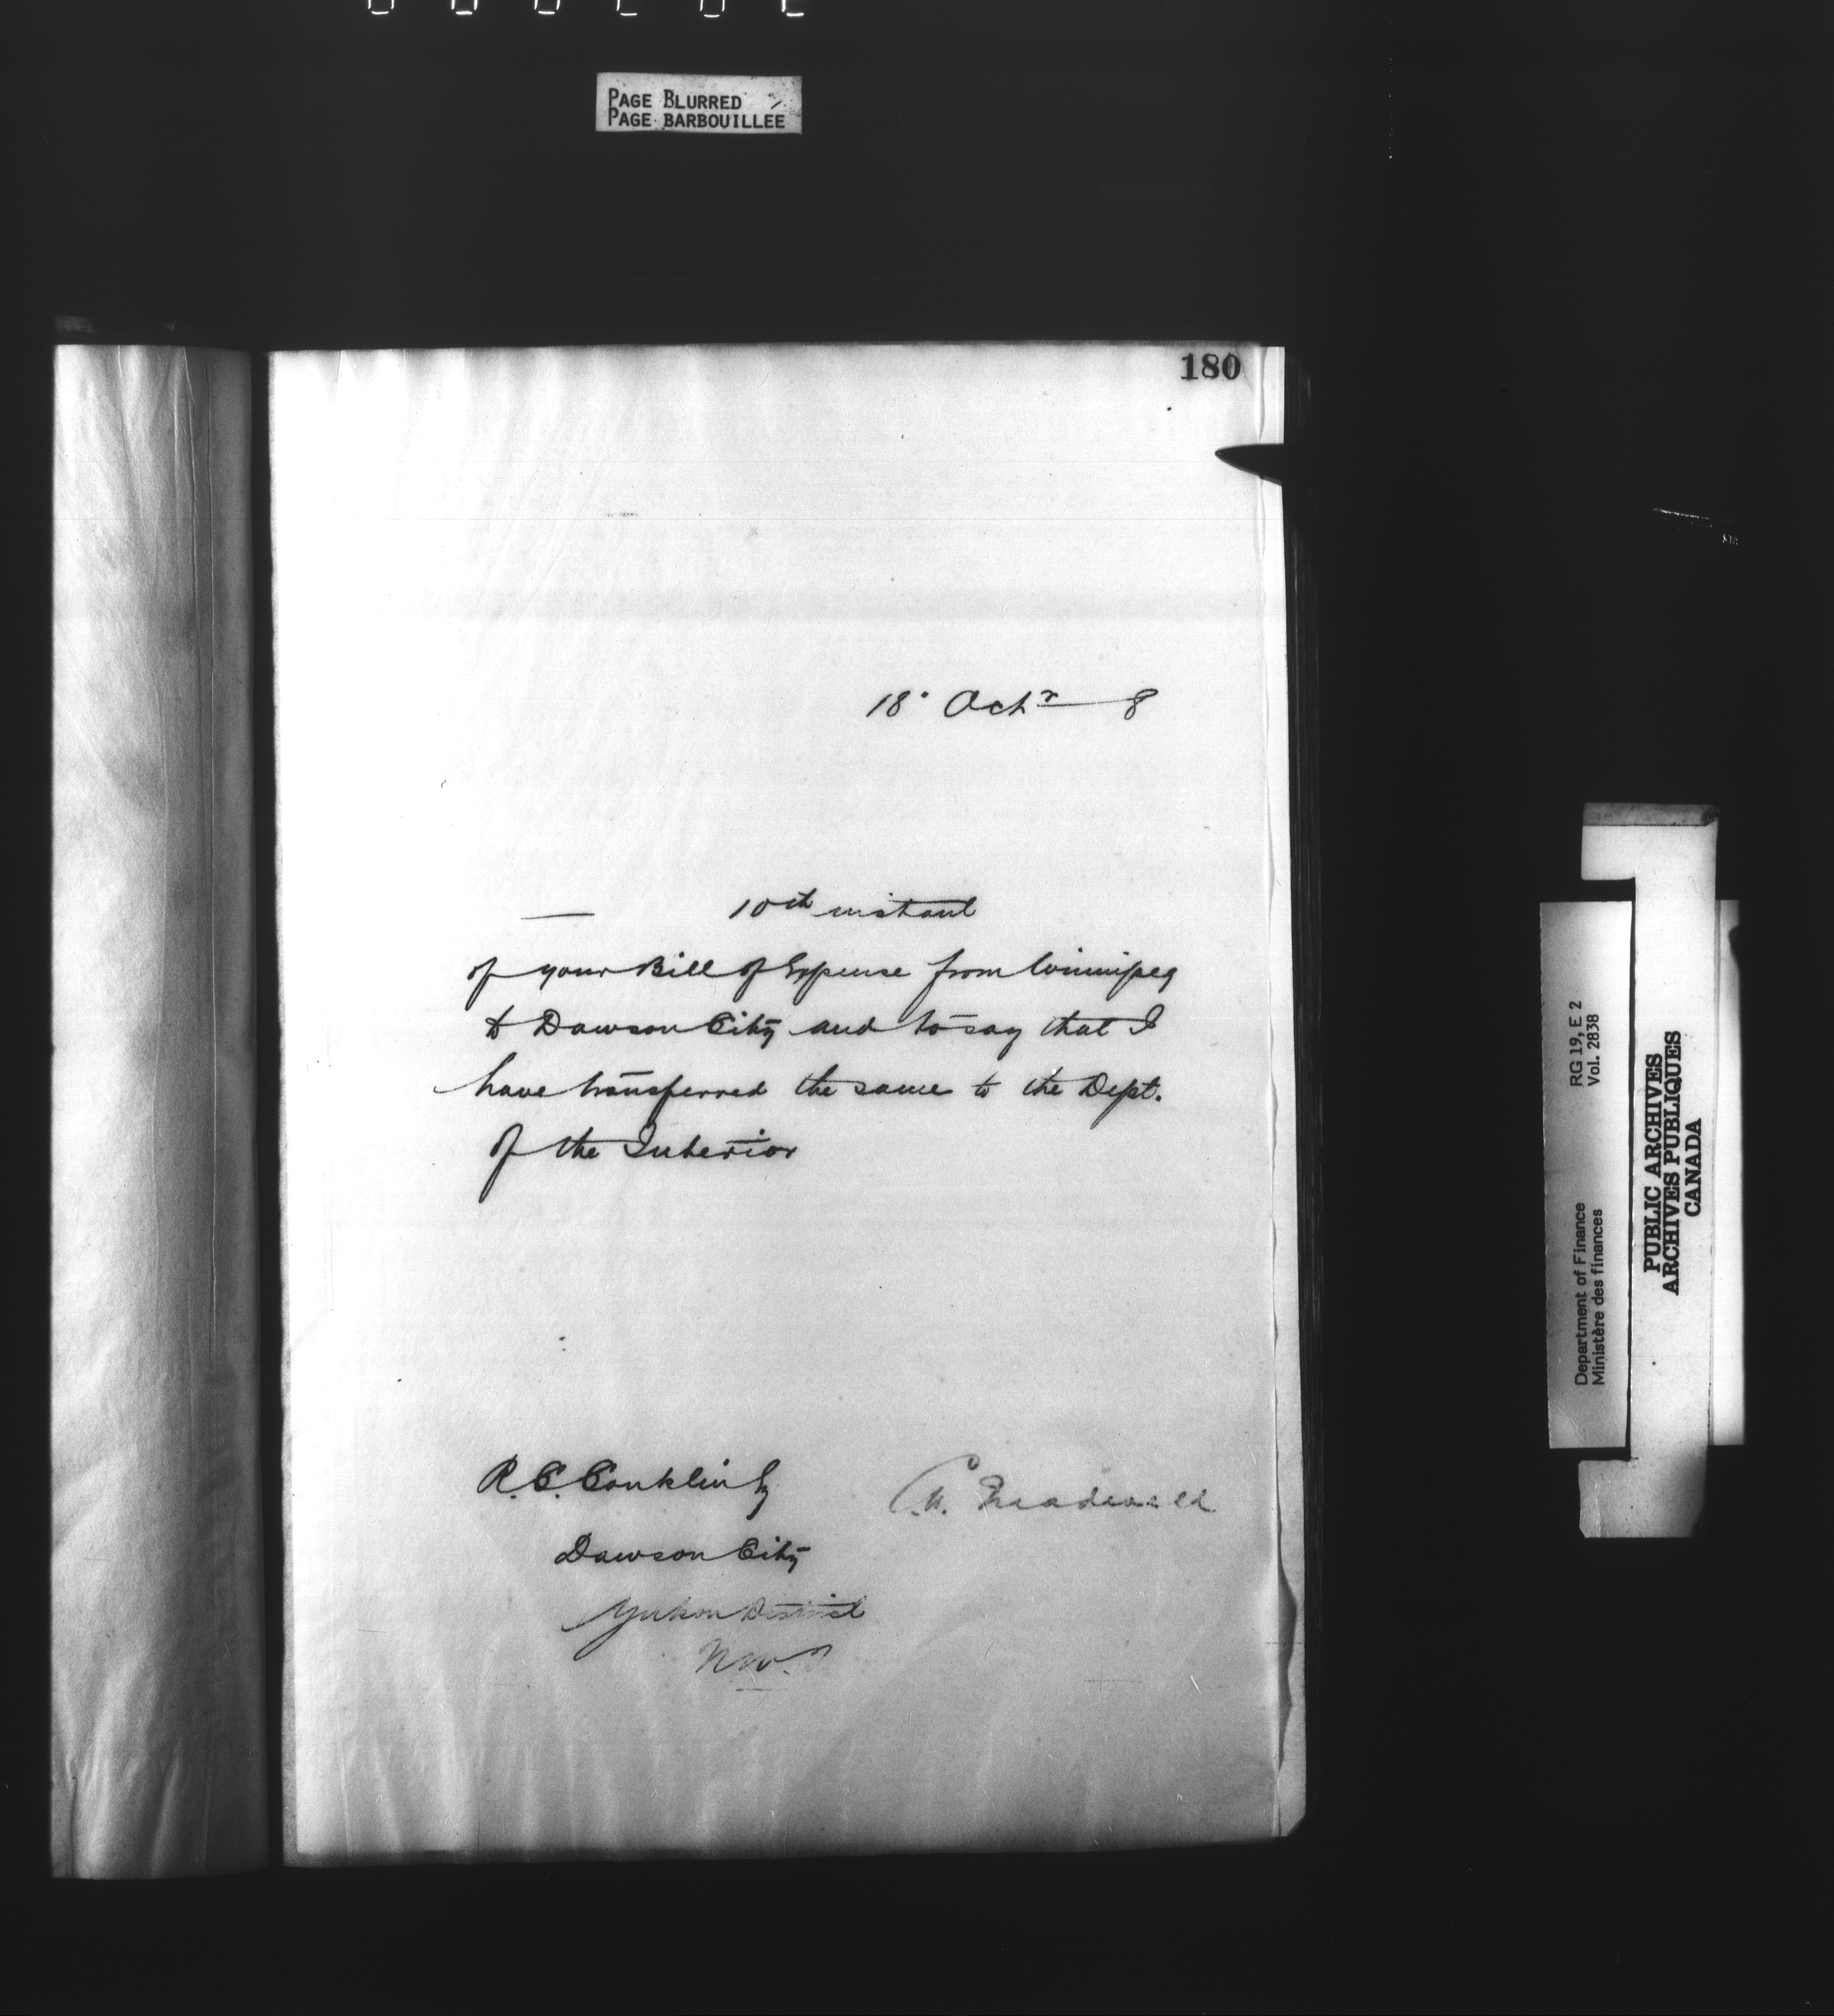 PAGE BLURRED
PAGE BARBOUILLEE
180
18 Octr 8
— 10th instant
of your Bill of Expense from Winnipeg
to Dawson City and to say that I
have transferred the same to the Dept.
of the Interior
R. C. Conklin Esq
Dawson City
Yukon District
N.W.
RG 19, E 2
Vol. 2838
Department of Finance
Ministère des finances
PUBLIC ARCHIVES
ARCHIVES PUBLIQUES
CANADA